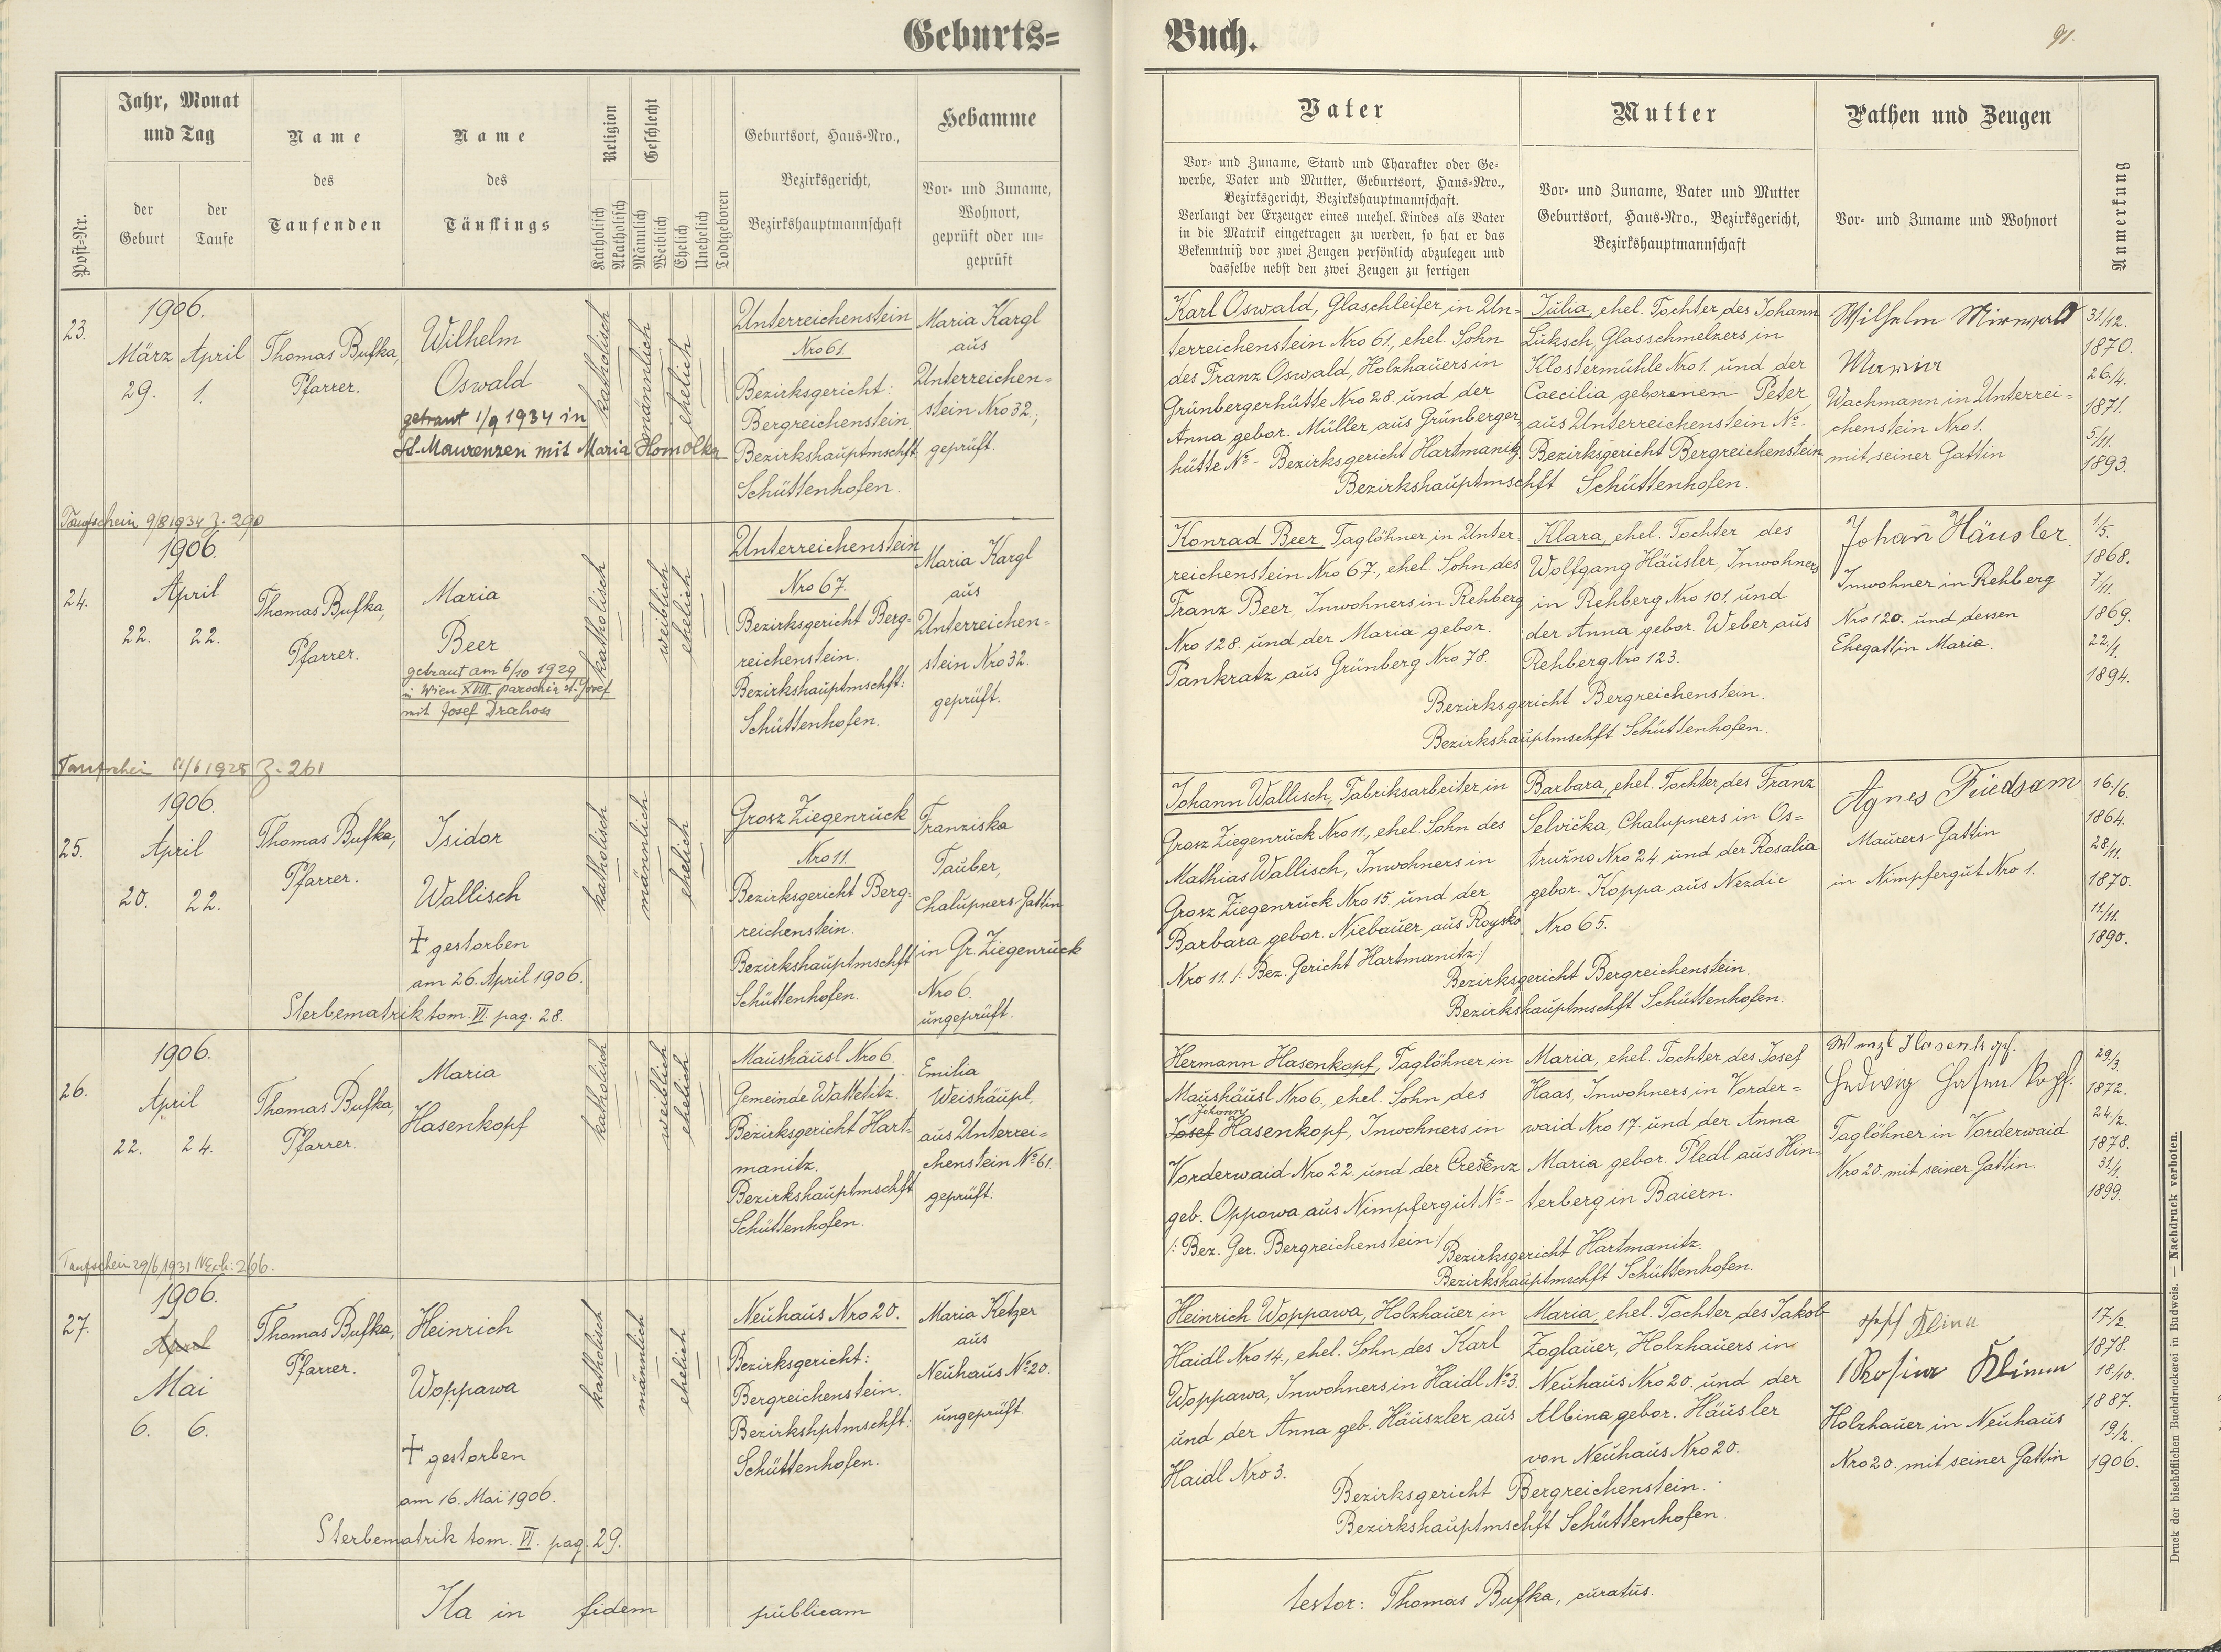 Geburts=
Buch.
91.
Post-Nr.
Jahr, Monat
und Tag
der
Geburt
der
Taufe
Name
des
Taufenden
Name
des
Täuflings
Religion
Katholisch
Akatholisch
Geschlecht
Männlich
Weiblich
Ehelich
Unehelich
Todtgeboren
Geburtsort, Haus-Nro.,
Bezirksgericht,
Bezirkshauptmannschaft
Hebamme
Vor- und Zuname,
Wohnort,
geprüft oder un-
geprüft
Vater
Vor- und Zuname, Stand und Charakter oder Ge-
werbe, Vater und Mutter, Geburtsort, Haus-Nro.,
Bezirksgericht, Bezirkshauptmannschaft.
Verlangt der Erzeuger eines unehel. Kindes als Vater
in die Matrik eingetragen zu werden, so hat er das
Bekenntniß vor zwei Zeugen persönlich abzulegen und
dasselbe nebst den zwei Zeugen zu fertigen
Mutter
Vor- und Zuname, Vater und Mutter
Geburtsort, Haus-Nro., Bezirksgericht,
Bezirkshauptmannschaft
Pathen und Zeugen
Vor- und Zuname und Wohnort
Anmerkung
23.
1906.
März April
29. 1.
Thomas Bufka,
Pfarrer.
Wilhelm
Oswald
getraut 1/9 1934 in
St. Maurenzen mit Maria Homolka
katholisch
männlich
ehelich
Unterreichenstein
Nro 61.
Bezirksgericht:
Bergreichenstein
Bezirkshauptmschft
Schüttenhofen.
Maria Kargl
aus
Unterreichen=
stein Nro 32.,
geprüft.
Karl Oswald, Glaschleifer in Un=
terreichenstein Nro 61., ehel. Sohn
des Franz Oswald, Holzhauers in
Grünbergerhütte Nro 28. und der
Anna gebor. Müller aus Grünberger
hütte No - Bezirksgericht Hartmanitz.
Julia, ehel. Tochter des Johann
Luksch, Glasschmelzers in
Klostermühle Nro 1. und der
Caecilia geborenen Peter
aus Unterreichenstein No -
Bezirksgericht Bergreichenstein
Bezirkshauptmschft Schüttenhofen.
Wilhelm Mirwald
Wachmann in Unterrei=
chenstein Nro 1.
mit seiner Gattin
31/12.
1870.
26./4.
1871.
5./11.
1893.
Taufschein 9/8 1934 Z. 290
24.
1906.
April
22. 22.
Thomas Bufka,
Pfarrer.
Maria
Beer
getraut am 6/10 1929
in Wien XVIII. parochia st. Josef
mit Josef Drahoss
katholisch
weiblich
ehelich
Unterreichenstein
Nro 67.
Bezirksgericht Berg-
reichenstein.
Bezirkshauptmschft:
Schüttenhofen.
Maria Kargl
aus
Unterreichen=
stein Nro 32.
geprüft.
Konrad Beer, Taglöhner in Unter-
reichenstein Nro 67., ehel. Sohn des
Franz Beer, Inwohners in Rehberg
Nro 128. und der Maria gebor.
Pankratz aus Grünberg Nro 78.
Klara, ehel. Tochter des
Wolfgang Häusler, Inwohners
in Rehberg Nro 101. und
der Anna gebor. Weber aus
Rehberg Nro 123.
Bezirksgericht Bergreichenstein.
Bezirkshauptmschft Schüttenhofen.
Johann Häusler
Inwohner in Rehberg
Nro 120. und dessen
Ehegattin Maria.
1/5.
1868.
7/11.
1869.
22./1.
1894.
Taufschein 11/6 1928 Z. 261
25.
1906.
April
20. 22.
Thomas Bufka,
Pfarrer.
Isidor
Wallisch
† gestorben
am 26. April 1906.
Sterbematrik tom. VI. pag. 28.
katholisch
männlich
ehelich
Grosz Ziegenruck
Nro 11.
Bezirksgericht Berg-
reichenstein.
Bezirkshauptmschft
Schüttenhofen.
Franziska
Tauber,
Chalupners-Gattin
in Gr. Ziegenruck
Nro 6.
ungeprüft.
Johann Wallisch, Fabriksarbeiter in
Grosz Ziegenruck Nro 11., ehel. Sohn des
Mathias Wallisch, Inwohners in
Grosz Ziegenruck Nro 15. und der
Barbara gebor. Niebauer aus Roysko
Nro 11. /: Bez. Gericht Hartmanitz:/
Barbara, ehel. Tochter des Franz
Selvička, Chalupners in Os=
tružno Nro 24. und der Rosalia
gebor. Koppa aus Nezdic
Nro 65.
Bezirksgericht Bergreichenstein.
Bezirkshauptmschft Schüttenhofen.
Agnes Friedsam
Maurers-Gattin
in Nimpfergut Nro 1.
16./6.
1864.
28/11.
1870.
11./11.
1890.
26.
1906.
April
22. 24.
Thomas Bufka,
Pfarrer.
Maria
Hasenkopf
katholisch
weiblich
ehelich
Maushäusl Nro 6.
Gemeinde Watetitz.
Bezirksgericht Hart-
manitz.
Bezirkshauptmschft
Schüttenhofen.
Emilia
Weishäupl,
aus Unterrei=
chenstein No 61.
geprüft.
Hermann Hasenkopf, Taglöhner in
Maushäusl Nro 6., ehel. Sohn des
Johann
Josef Hasenkopf, Inwohners in
Vorderwaid Nro 22. und der Cresenz
geb. Oppowa aus Nimpfergut No -
/: Bez. Ger. Bergreichenstein:/
Maria, ehel. Tochter des Josef
Haas, Inwohners in Vorder=
waid Nro 17. und der Anna
Maria gebor. Pledl aus Hin-
terberg in Baiern.
Bezirksgericht Hartmanitz.
Bezirkshauptmschft Schüttenhofen.
Wenzl Hasenkopf.
Hedwig Hasenkopf.
Taglöhner in Vorderwaid
Nro 20. mit seiner Gattin.
29./3.
1872.
24./2.
1878.
31./1.
1899.
Taufschein 29/6 1931 NExh: 266.
27.
1906.
April
Mai
6. 6.
Thomas Bufka,
Pfarrer.
Heinrich
Woppawa
† gestorben
am 16. Mai 1906.
Sterbematrik tom. VI. pag. 29.
katholisch
männlich
ehelich
Neuhaus Nro 20.
Bezirksgericht:
Bergreichenstein.
Bezirkshptmschft:
Schüttenhofen.
Maria Ketzer
aus
Neuhaus No 20.
ungeprüft
Heinrich Woppawa, Holzhauer in
Haidl Nro 14., ehel. Sohn des Karl
Woppawa, Inwohners in Haidl No 3.
und der Anna geb. Häuszler aus
Haidl Nro 3.
Maria, ehel. Tochter des Jakob
Zoglauer, Holzhauers in
Neuhaus Nro 20. und der
Albina gebor. Häusler
von Neuhaus Nro 20.
Bezirksgericht Bergreichenstein.
Bezirkshauptmschft Schüttenhofen.
Rosina Klima
Holzhauer in Neuhaus
Nro 20. mit seiner Gattin
17/2.
1878.
18/10.
1887.
19./2.
1906.
Ita in fidem publicam
testor: Thomas Bufka, curatus.
Druck der bischöflichen Buchdruckerei in Budweis. — Nachdruck verboten.